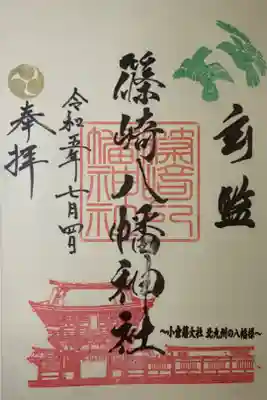 玄監
篠崎八幡神社
令和五年七月四日
奉拝
〜小倉藩大社 北九州の八幡様〜